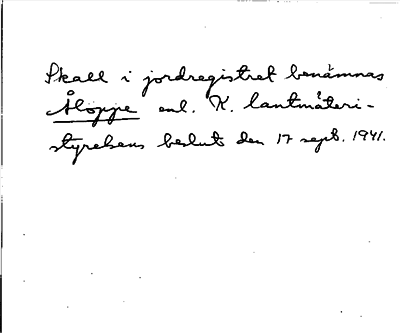 Skall i jordregistret benämnas
Åloppe enl. K. lantmäteri-
styrelsens beslut den 17 sept. 1941.